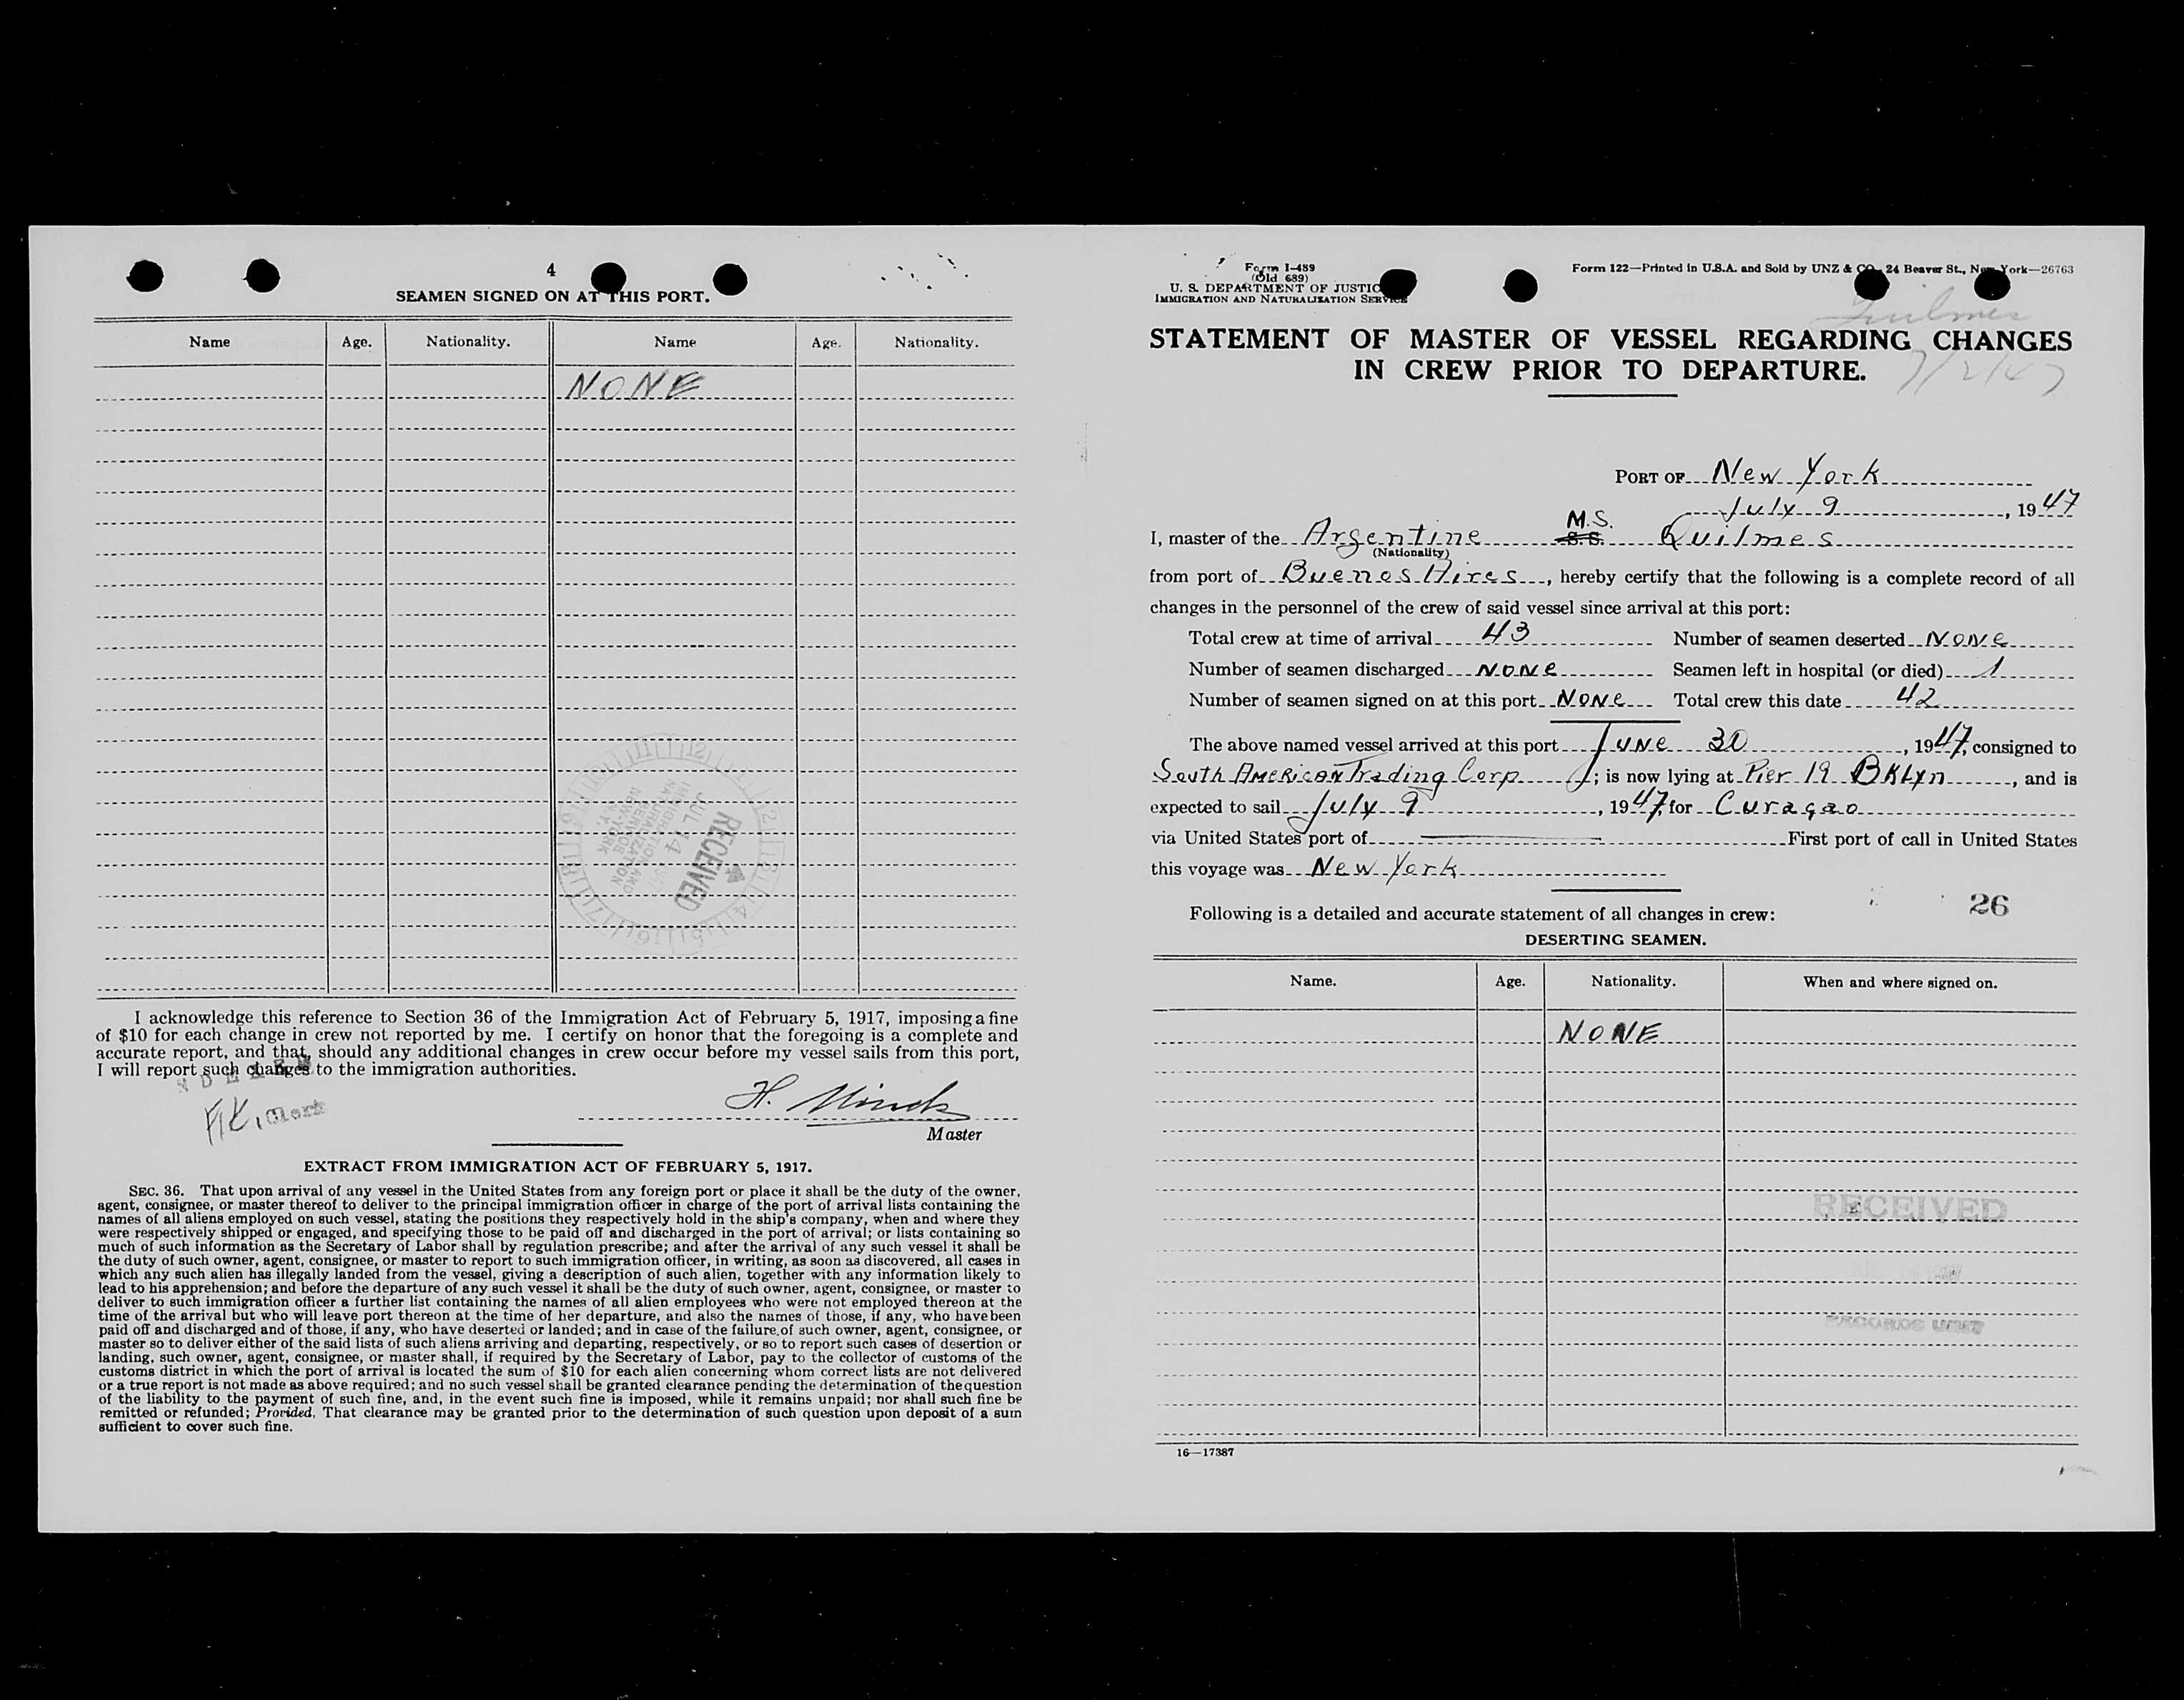 4
SEAMEN SIGNED ON AT THIS PORT.
Name Age. Nationality. Name Age. Nationality.
NONE
RECEIVED
JUL 14
I acknowledge this reference to Section 36 of the Immigration Act of February 5, 1917, imposing a fine
of $10 for each change in crew not reported by me. I certify on honor that the foregoing is a complete and
accurate report, and that, should any additional changes in crew occur before my vessel sails from this port,
I will report such changes to the immigration authorities.
Clerk
H.
Master
EXTRACT FROM IMMIGRATION ACT OF FEBRUARY 5, 1917.
SEC. 36. That upon arrival of any vessel in the United States from any foreign port or place it shall be the duty of the owner,
agent, consignee, or master thereof to deliver to the principal immigration officer in charge of the port of arrival lists containing the
names of all aliens employed on such vessel, stating the positions they respectively hold in the ship's company, when and where they
were respectively shipped or engaged, and specifying those to be paid off and discharged in the port of arrival; or lists containing so
much of such information as the Secretary of Labor shall by regulation prescribe; and after the arrival of any such vessel it shall be
the duty of such owner, agent, consignee, or master to report to such immigration officer, in writing, as soon as discovered, all cases in
which any such alien has illegally landed from the vessel, giving a description of such alien, together with any information likely to
lead to his apprehension; and before the departure of any such vessel it shall be the duty of such owner, agent, consignee, or master to
deliver to such immigration officer a further list containing the names of all alien employees who were not employed thereon at the
time of the arrival but who will leave port thereon at the time of her departure, and also the names of those, if any, who have been
paid off and discharged and of those, if any, who have deserted or landed; and in case of the failure of such owner, agent, consignee, or
master so to deliver either of the said lists of such aliens arriving and departing, respectively, or so to report such cases of desertion or
landing, such owner, agent, consignee, or master shall, if required by the Secretary of Labor, pay to the collector of customs of the
customs district in which the port of arrival is located the sum of $10 for each alien concerning whom correct lists are not delivered
or a true report is not made as above required; and no such vessel shall be granted clearance pending the determination of the question
of the liability to the payment of such fine, and, in the event such fine is imposed, while it remains unpaid; nor shall such fine be
remitted or refunded; Provided, That clearance may be granted prior to the determination of such question upon deposit of a sum
sufficient to cover such fine.
Form I-489
(Old 689)
U. S. DEPARTMENT OF JUSTICE
IMMIGRATION AND NATURALIZATION SERVICE
Form 122—Printed in U.S.A. and Sold by UNZ & CO., 24 Beaver St., New York—26763
Quilmes
STATEMENT OF MASTER OF VESSEL REGARDING CHANGES
IN CREW PRIOR TO DEPARTURE.
7/2/47
PORT OF New York
July 9, 1947
I, master of the Argentine M.S. S.S. Quilmes
(Nationality)
from port of Buenos Aires, hereby certify that the following is a complete record of all
changes in the personnel of the crew of said vessel since arrival at this port:
Total crew at time of arrival 43 Number of seamen deserted None
Number of seamen discharged None Seamen left in hospital (or died) 1
Number of seamen signed on at this port None Total crew this date 42
The above named vessel arrived at this port June 30, 1947, consigned to
South American Trading Corp; is now lying at Pier 19 BKlyn, and is
expected to sail July 9, 1947, for Curaçao
via United States port of First port of call in United States
this voyage was New York
26
Following is a detailed and accurate statement of all changes in crew:
DESERTING SEAMEN.
Name. Age. Nationality. When and where signed on.
NONE
RECEIVED
RECORDS UNIT
16—17387